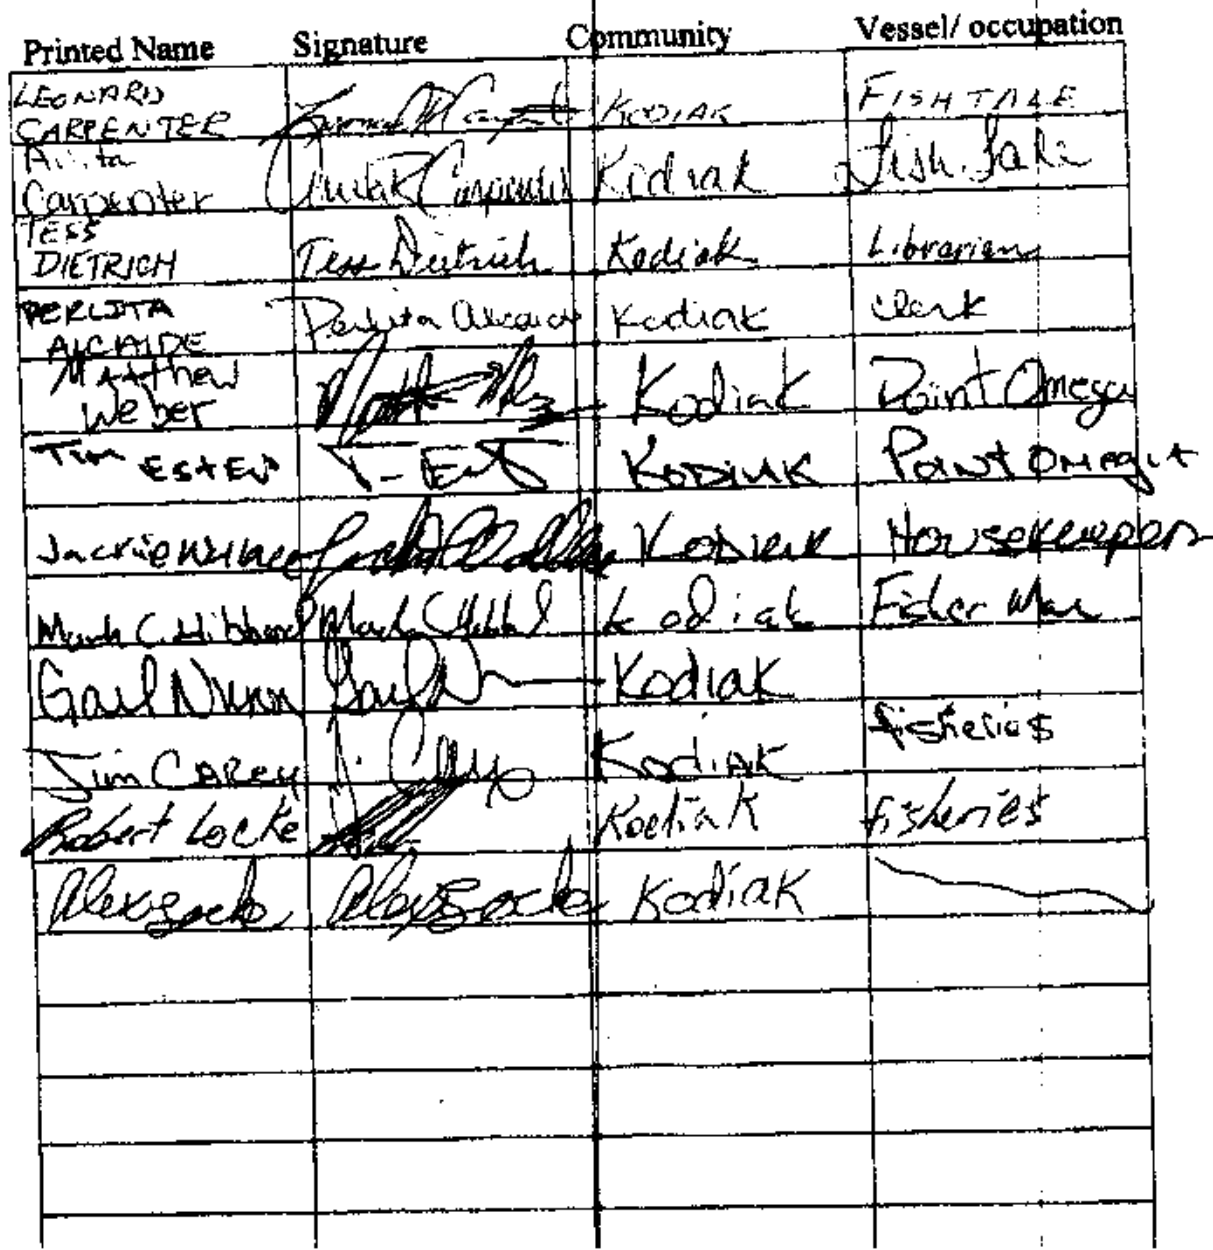 Printed Name Signature Community Vessel/ occupation
LEONARD
CARPENTER KODIAK FISHTALE
Anita
Carpenter Anita Carpenter Kodiak Fish Tale
TESS
DIETRICH Tess Dietrich Kodiak Librarian
PERLITA
ALCAIDE Perlita Alcaide Kodiak clerk
Matthew
Weber Kodiak Point Omega
Tim ESTES KODIAK Point Omega
Jackie KODIAK Housekeeper
Mark C. Hibbard Mark C Hibbard kodiak Fisher Man
Gail Nunn Gail Kodiak
Jim CAREY Kodiak fisheries
Robert Locke Kodiak fisheries
Alex Kodiak